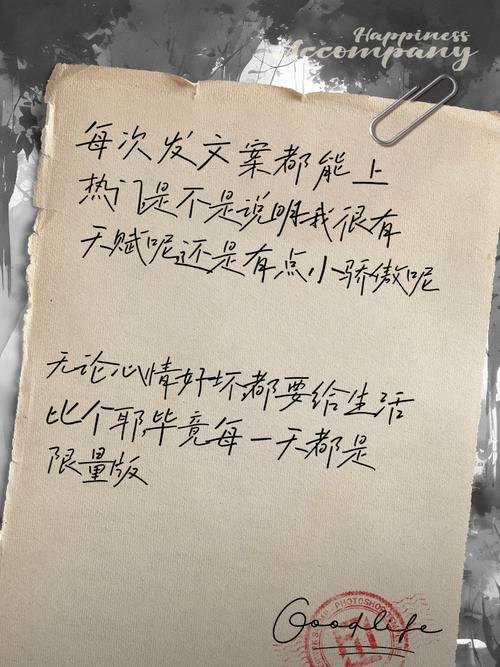 Happiness
Accompany
每次发文案都能上
热门是不是说明我很有
天赋呢还是有点小骄傲呢
无论心情好坏都要给生活
比个耶毕竟每一天都是
限量版
Goodlife